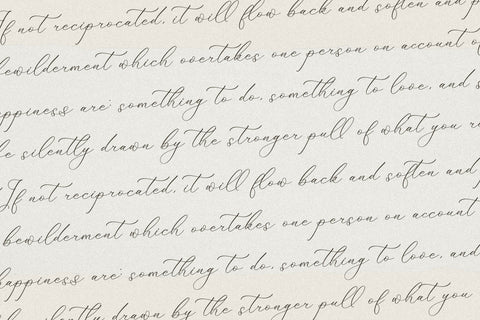 If not reciprocated, it will flow back and soften and p
bewilderment which overtakes one person on account of
happiness are: something to do, something to love, and s
be silently drawn by the stronger pull of what you re
If not reciprocated, it will flow back and soften and p
bewilderment which overtakes one person on account
happiness are: something to do, something to love, and
be silently drawn by the stronger pull of what you